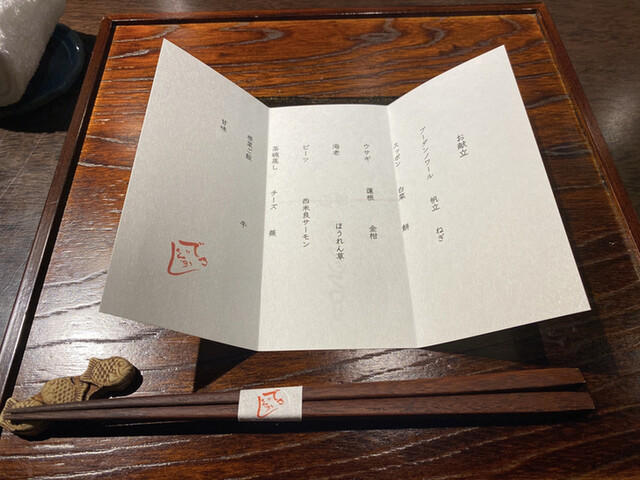 お献立
ブーダンノワール 帆立 ねぎ
スッポン 白菜 餅
ウサギ 蓮根 金柑
海老 ほうれん草
ビーツ 西米良サーモン
茶碗蒸し チーズ 蕪
牛
甘味